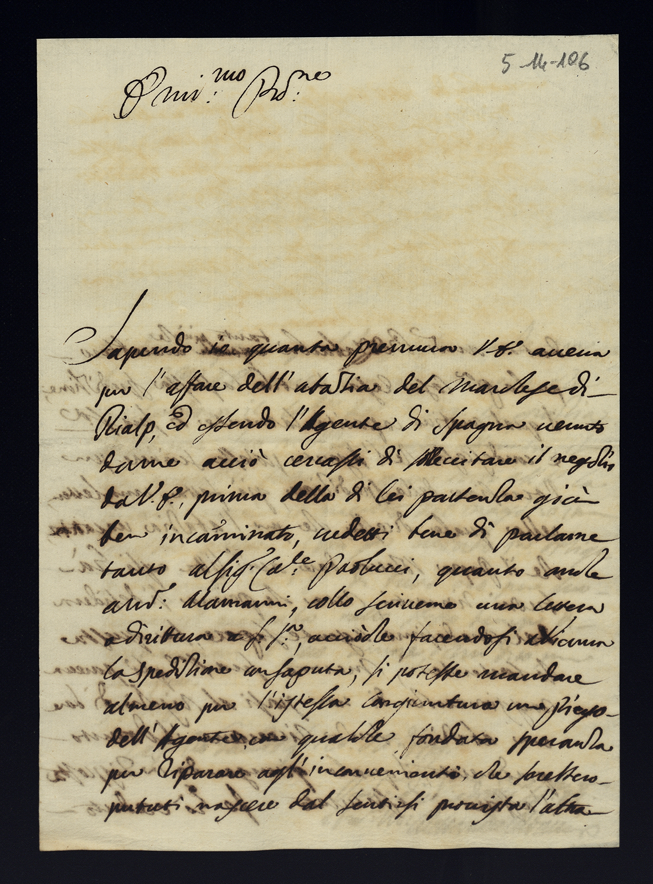 5-14-106
Emi:mo Pd:ne
Sapendo io quanta premura V.E. aueua
per l'affare dell'abatia del Marchese di
Rialp, ed essendo l'Agente di Spagna uenuto
da me acciò cercassi di sollecitare il negotio
da V.E., prima della di lei partenza già
ben incaminato, credetti bene di parlarne
tanto al sig:r Ca:le Paolucci, quanto anche
a Alamanni, collo scriuerne una lettera
a diritura a acciòche facendosi alcuna
la speditione consaputa, si potesse mandare
almeno per l'istessa congiuntura un piego
dell'Agente, con qualche fondata speranza
per riparare agl'inconuenienti, che sarebbero
potuti nascere dal sentirsi prouista l'aba-